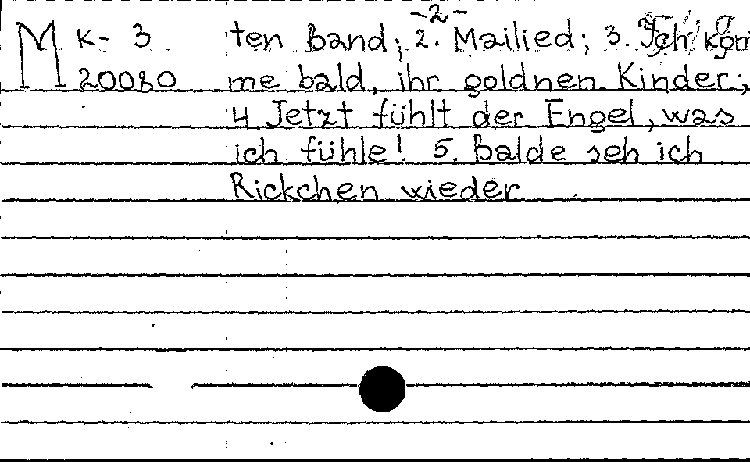 -2-
M K- 3 ten Band; 2. Mailied; 3. Ich kom
20080 me bald, ihr goldnen Kinder;
4 Jetzt fühlt der Engel, was
ich fühle! 5. Balde seh ich
Rickchen wieder